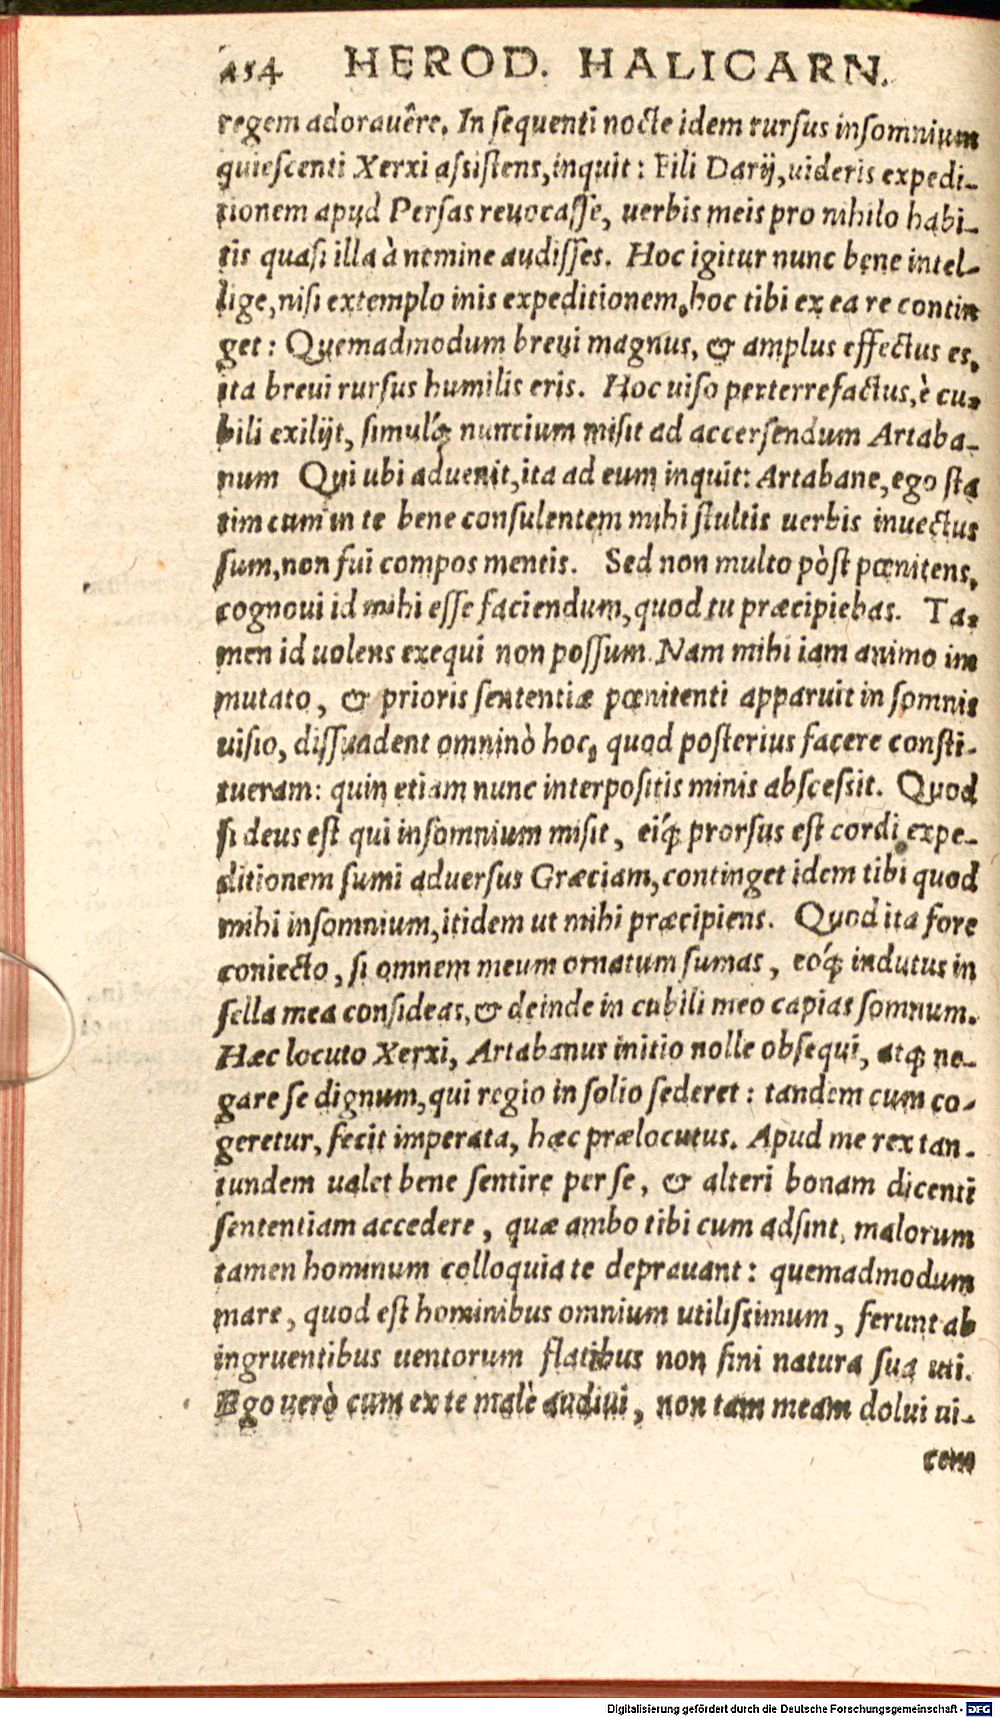 454 HEROD. HALICARN.
regem adorauêre. In sequenti nocte idem rursus insomnium
quiescenti Xerxi assistens, inquit: Fili Darij, uideris expedi-
tionem apud Persas reuocasse, uerbis meis pro nihilo habi-
tis quasi illa à nemine audisses. Hoc igitur nunc bene intel-
lige, nisi extemplo inis expeditionem, hoc tibi ex ea re contin
get: Quemadmodum breui magnus, & amplus effectus es,
ita breui rursus humilis eris. Hoc uiso perterrefactus, è cu-
bili exilijt, simulq́; nuncium misit ad accersendum Artaba-
num Qui ubi aduenit, ita ad eum inquit: Artabane, ego sta
tim cum in te bene consulentem mihi stultis uerbis inuectus
sum, non fui compos mentis. Sed non multo pòst pœnitens,
cognoui id mihi esse faciendum, quod tu præcipiebas. Ta-
men id uolens exequi non possum. Nam mihi iam animo im
mutato, & prioris sententiæ pœnitenti apparuit in somnis
uisio, dissuadent omninò hoc, quod posterius facere consti-
tueram: quin etiam nunc interpositis minis abscessit. Quod
si deus est qui insomnium misit, eiq́; prorsus est cordi expe-
ditionem sumi aduersus Græciam, continget idem tibi quod
mihi insomnium, itidem ut mihi præcipiens. Quod ita fore
coniecto, si omnem meum ornatum sumas, eoq́; indutus in
sella mea consideas, & deinde in cubili meo capias somnum.
Hæc locuto Xerxi, Artabanus initio nolle obsequi, atq; ne-
gare se dignum, qui regio in solio sederet: tandem cum co-
geretur, fecit imperata, hæc prælocutus. Apud me rex tan-
tundem ualet bene sentire per se, & alteri bonam dicenti
sententiam accedere, quæ ambo tibi cum adsint, malorum
tamen hominum colloquia te deprauant: quemadmodum
mare, quod est hominibus omnium utilissimum, ferunt ab
ingruentibus uentorum flatibus non sini natura sua uti.
Ego uerò cum ex te malè audiui, non tam meam dolui ui-
cem
Digitalisierung gefördert durch die Deutsche Forschungsgemeinschaft - DFG